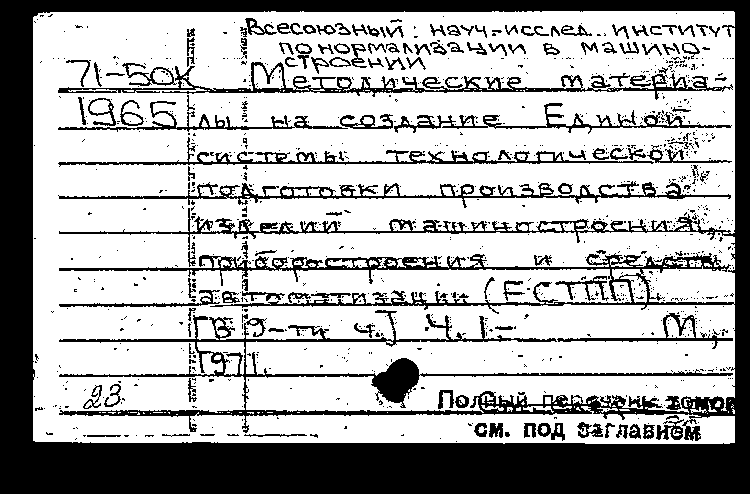 Всесоюзный науч.-исслед. институт
по нормализации в машино-
строении
71-50К Методические материа-
1965 лы на создание Единой
системы технологической
подготовки производства
изделий машиностроения,
приборостроения и средств
автоматизации (ЕСТПП)
[В 9-ти ч.] Ч. 1- М.,
1971.
23
Полный перечень томов
см. под заглавием